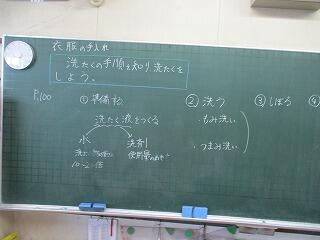 衣服の手入れ
洗たくの手順を知り、洗たくを
しよう。
P.100
①準備する
洗たく液をつくる
水
洗剤
使用量のめやす
②洗う
・もみ洗い
・つまみ洗い
③しぼる
④